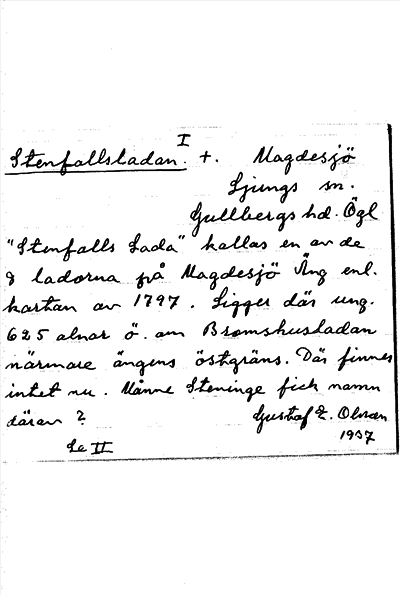 I
Stenfallsladan. +. Magdesjö
Ljungs sn.
Gullbergs hd. Ögl
"Stenfalls Lada" kallas en av de
8 ladorna på Magdesjö Äng enl.
kartan av 1797. Ligger där ung.
625 alnar ö. om Bromshusladan
närmare ängens östgräns. Där finnes
intet nu. Månne Steninge fick namn
därav?
Gustaf E. Olsson
1937
Se II